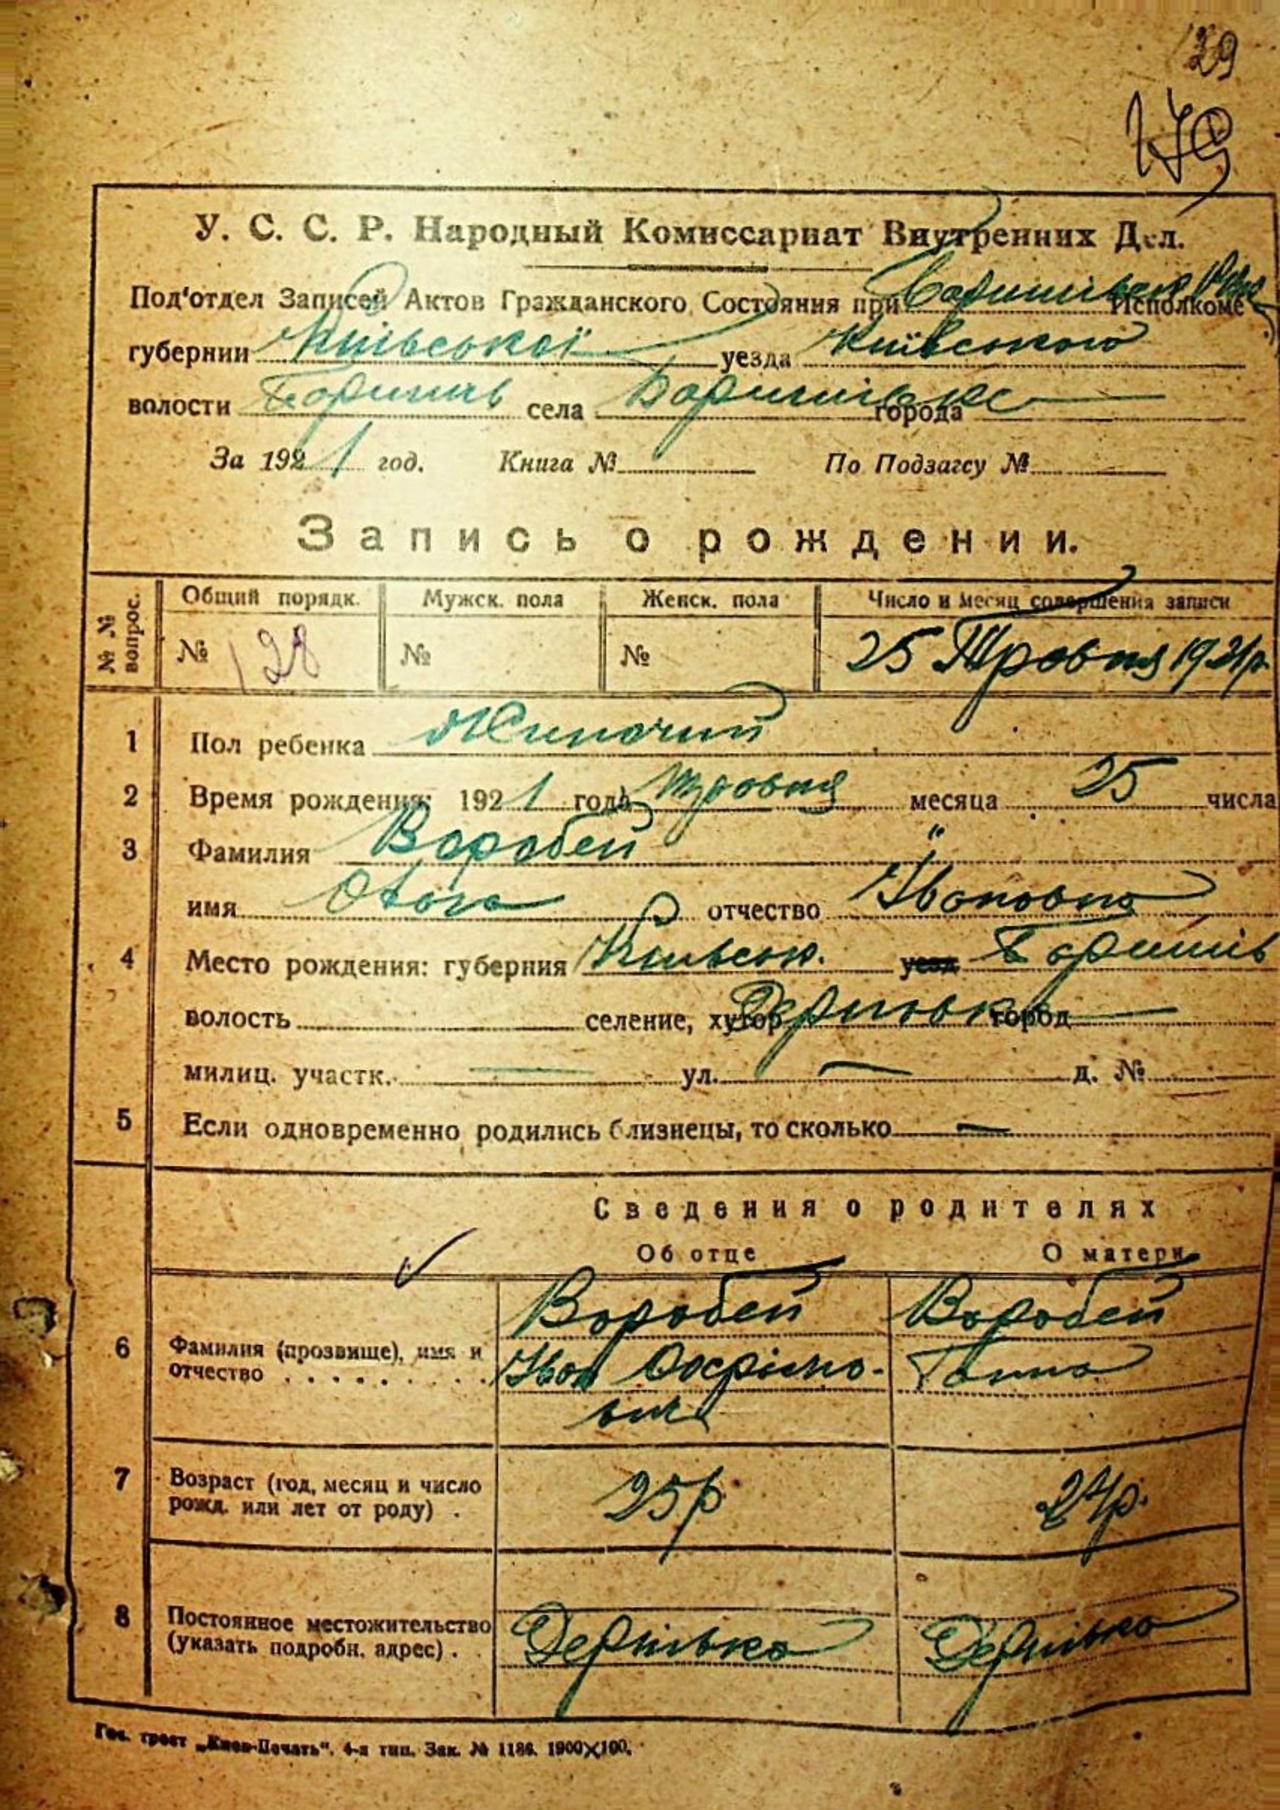 39
179
У. С. С. Р. Народный Комиссариат Внутренних Дел.
Под'отдел Записей Актов Гражданского Состояния при Исполкоме
губернии Київської уезда Київського
волости Боришпіль села города
За 1921 год. Книга № По Подзагсу №
Запись о рождении.
№ № вопрос. Общий порядк. Мужск. пола Женск. пола Число и месяц совершения записи
№ 128 № № 25 Травня 1921 р.
1 Пол ребенка Жиночий
2 Время рождения: 1921 года Травня месяца 25 числа
3 Фамилия Воробей "
имя отчество Ивановна
4 Место рождения: губерния Київськ. уезд
волость селение, хутор город —
милиц. участк. — ул. — д. №
5 Если одновременно родились близнецы, то сколько —
Сведения о родителях
Об отце О матери
6 Фамилия (прозвище), имя и отчество . . . . . . . . . Воробей Воробей
Іван Ганна
7 Возраст (год, месяц и число рожд. или лет от роду) . 25 р 24 р.
8 Постоянное местожительство (указать подробн. адрес) .
Гос. трест „Киев-Печать". 4-я тип. Зак. № 1186. 1900×100.